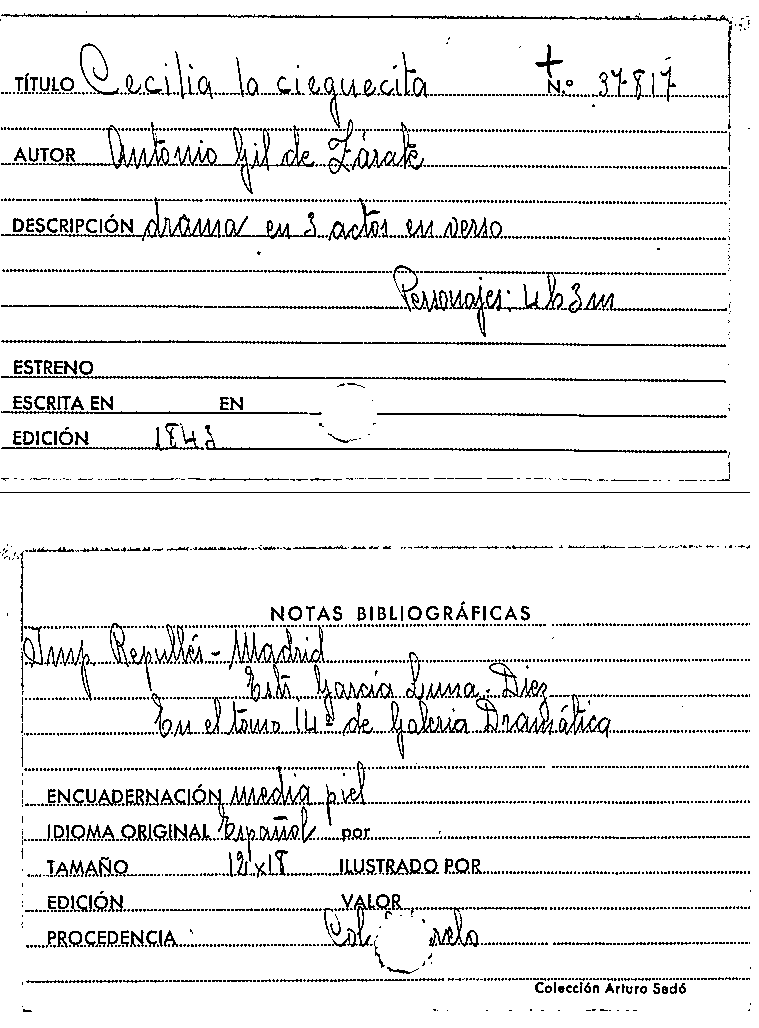 TÍTULO Cecilia la cieguecita N.º 37817
AUTOR Antonio Gil de Zárate
DESCRIPCIÓN drama en 3 actos en verso
Personajes: 4h 3m
ESTRENO
ESCRITA EN EN
EDICIÓN 1843
NOTAS BIBLIOGRÁFICAS
Imp Repullés - Madrid
Estr. García Luna. Diez
En el tomo 14º de Galeria Dramática
ENCUADERNACIÓN media piel
IDIOMA ORIGINAL Español por
TAMAÑO 12x18 ILUSTRADO POR
EDICIÓN VALOR
PROCEDENCIA Col
Colección Arturo Sedó